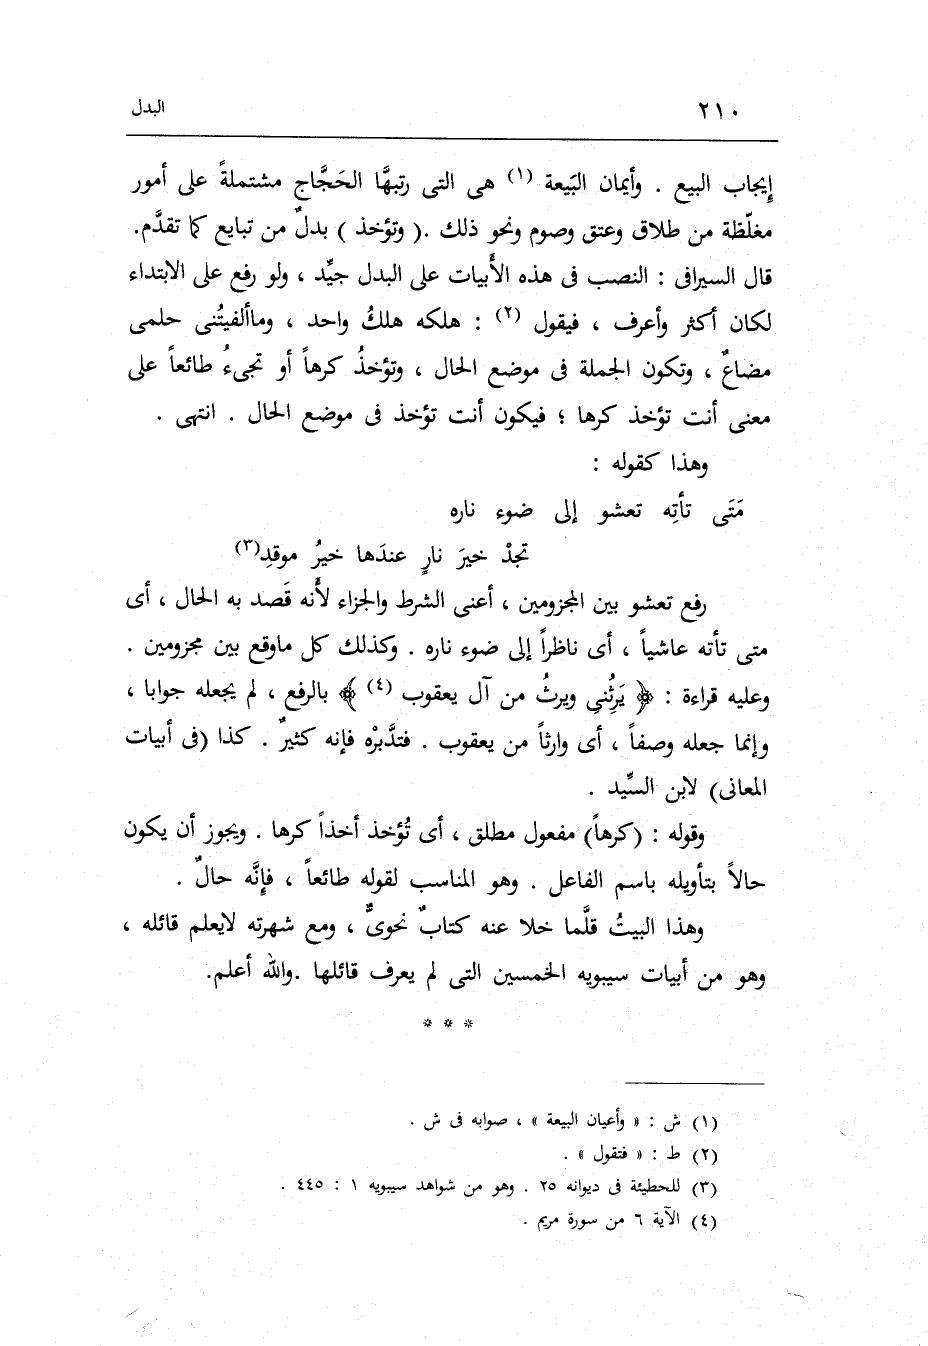 ٢١٠ البدل
إيجاب البيع . وأيمان البَيعة (١) هى التى رتبهَّا الحَجَّاج مشتملةً على أمور
مغلّظة من طلاق وعتق وصوم ونحو ذلك .( وتؤخذ ) بدلٌ من تبايع كما تقدَّم.
قال السيرافى : النصب فى هذه الأَبيات على البدل جيِّد ، ولو رفع على الابتداء
لكان أكثر وأعرف ، فيقول (٢) : هلكه هلكُ واحد ، وماألفيتُنى حلمى
مضاعٌ ، وتكون الجملة فى موضع الحال ، وتؤخذُ كرهاً أو تجىءُ طائعاً على
معنى أنت تؤخذ كرها ؛ فيكون أنت تؤخذ فى موضع الحال . انتهى .
وهذا كقوله :
مَتَى تأتِه تعشو إلى ضوء ناره
تجدْ خيرَ نارٍ عندَها خيرُ موقدِ(٣)
رفع تعشو بين المجزومين ، أعنى الشرط والجزاء لأَنه قَصد به الحال ، أى
متى تأته عاشياً ، أى ناظراً إلى ضوء ناره . وكذلك كل ماوقع بين مجزومين .
وعليه قراءة : ﴿ يَرِثُنى ويرثُ من آل يعقوب (٤) ﴾ بالرفع ، لم يجعله جوابا ،
وإنما جعله وصفاً ، أى وارثاً من يعقوب . فتدَّبرْه فإنه كثيرٌ . كذا (فى أبيات
المعانى) لابن السِّيد .
وقوله : (كرهاً) مفعول مطلق ، أى تُؤخذ أخذاً كرها . ويجوز أن يكون
حالاً بتأويله باسم الفاعل . وهو المناسب لقوله طائعاً ، فإنَّه حالٌ .
وهذا البيتُ قلَّما خلا عنه كتابٌ نحوىٌّ ، ومع شهرته لايعلم قائله ،
وهو من أبيات سيبويه الخمسين التى لم يعرف قائلها .والله أعلم.
* * *
(١) ش : « وأعيان البيعة » ، صوابه فى ش .
(٢) ط : « فتقول » .
(٣) للحطيئة فى ديوانه ٢٥ . وهو من شواهد سيبويه ١ : ٤٤٥ .
(٤) الآية ٦ من سورة مريم .